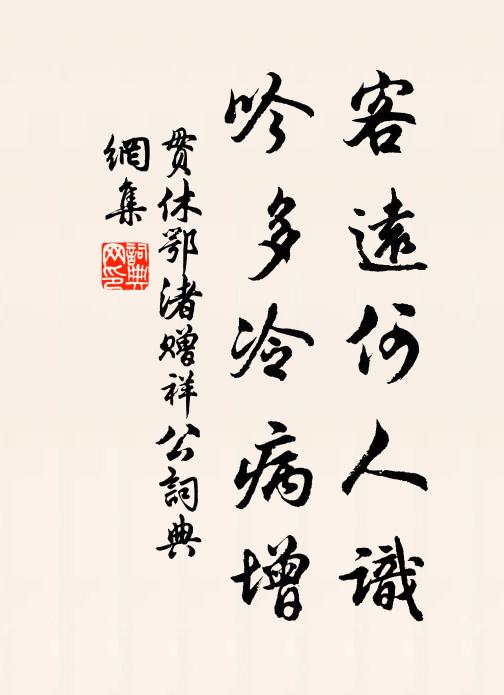 客遠何人識
吟多冷病增
貫休鄂渚贈祥公詞典
網集
詞典
网印